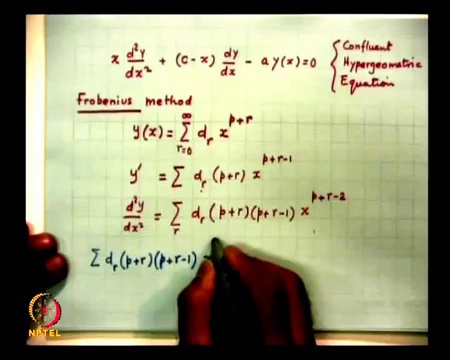 x d²y/dx² + (c-x) dy/dx - a y(x) = 0 { Confluent Hypergeometric Equation
Frobenius method
y(x) = ∑_{r=0}^{∞} d_r x^{p+r}
y' = ∑ d_r (p+r) x^{p+r-1}
d²y/dx² = ∑_r d_r (p+r)(p+r-1) x^{p+r-2}
∑ d_r (p+r)(p+r-1)
NPTEL